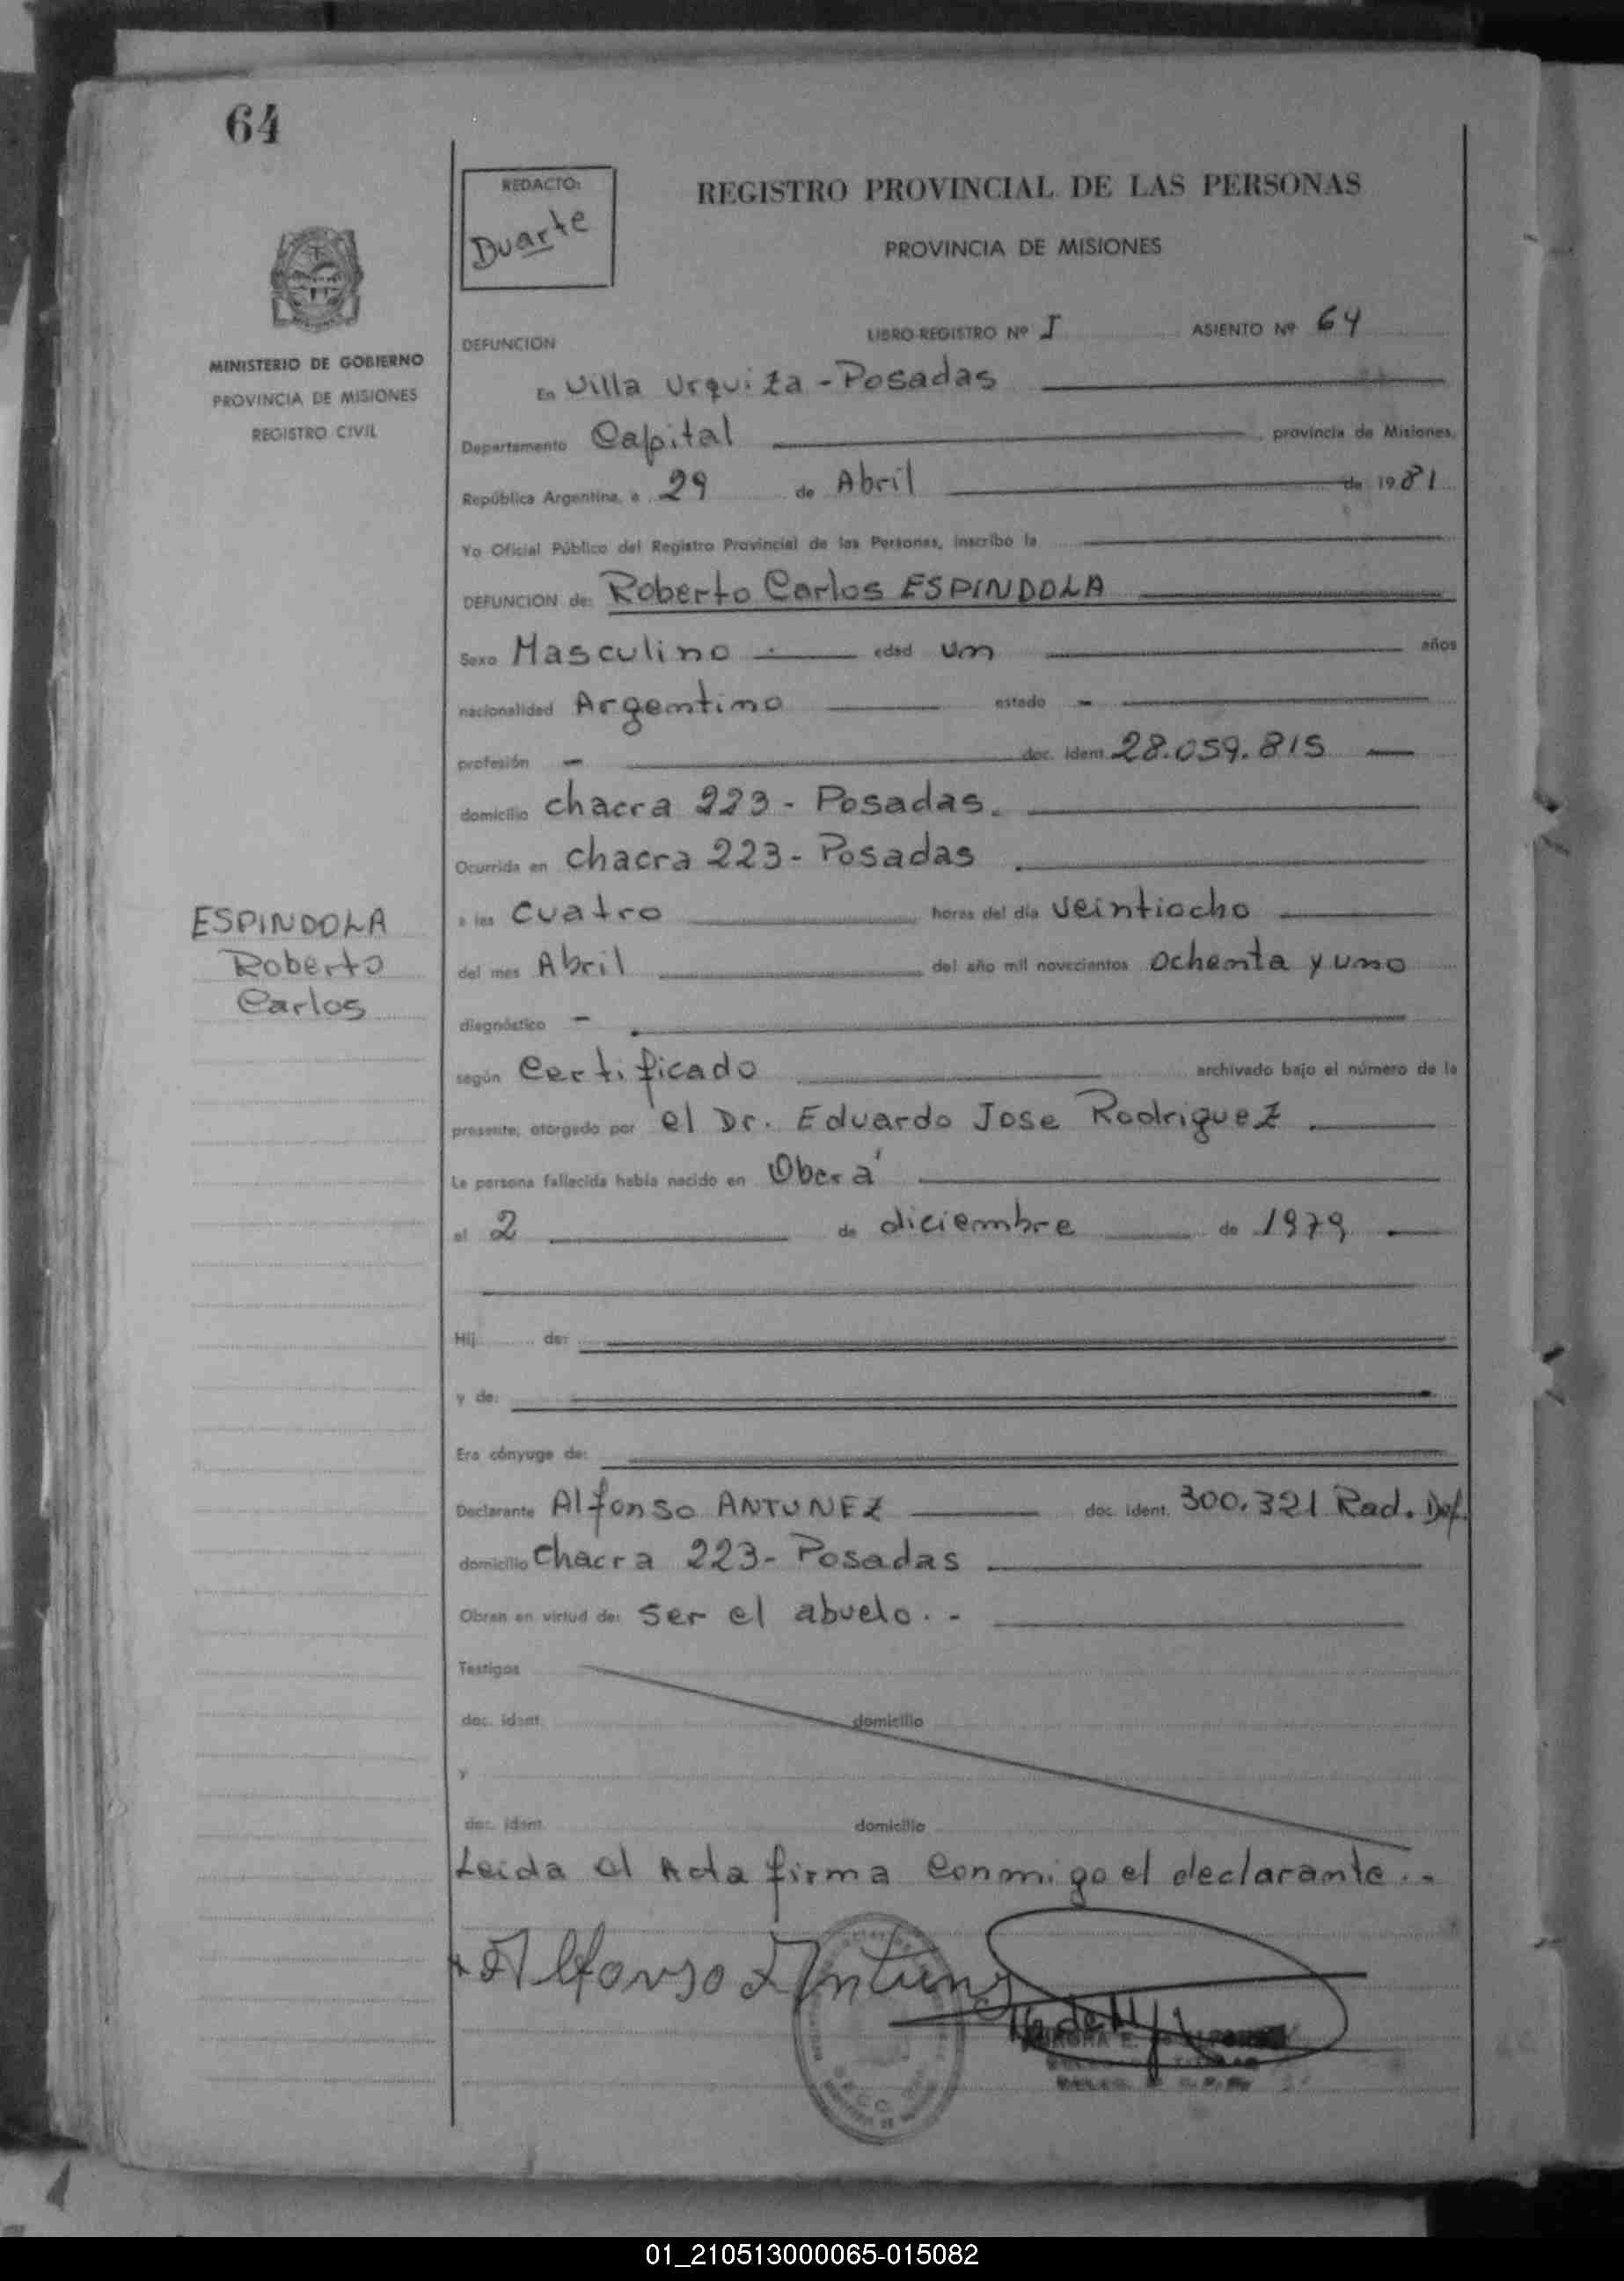 64
REDACTO:
Duarte
REGISTRO PROVINCIAL DE LAS PERSONAS
PROVINCIA DE MISIONES
MINISTERIO DE GOBIERNO
PROVINCIA DE MISIONES
REGISTRO CIVIL
DEFUNCION LIBRO-REGISTRO Nº I ASIENTO Nº 64
En Villa Urquiza - Posadas
Departamento Capital, provincia de Misiones,
República Argentina, a 29 de Abril de 1981
Yo Oficial Público del Registro Provincial de las Personas, inscribo la
DEFUNCION de: Roberto Carlos ESPINDOLA
Sexo Masculino edad un años
nacionalidad Argentino estado -
profesión - doc. ident. 28.059.815
domicilio chacra 223 - Posadas.
Ocurrida en chacra 223 - Posadas
a las cuatro horas del día veintiocho
del mes Abril del año mil novecientos ochenta y uno
ESPINDOLA
Roberto
Carlos
diagnóstico -
según Certificado archivado bajo el número de la
presente, otorgado por el Dr. Eduardo Jose Rodriguez
La persona fallecida había nacido en Oberá
el 2 de diciembre de 1979
Hij de:
y de:
Era cónyuge de:
Declarante Alfonso ANTUNEZ doc. ident. 300.321 Rad. Def.
domicilio Chacra 223 - Posadas
Obran en virtud de: ser el abuelo. -
Testigos
doc. ident. domicilio
y
doc. ident. domicilio
Leida el Acta firma conmigo el declarante. -
Alfonso Antunez
01_210513000065-015082